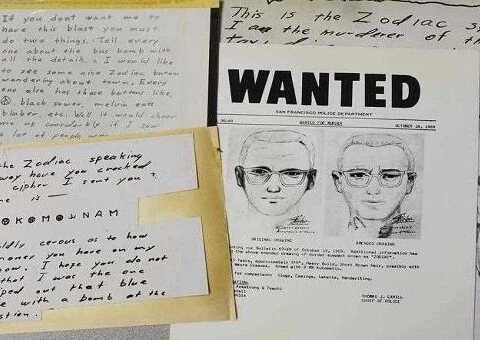 If you dont want me to
have this blast you must
do two things. Tell every
one about the bus bomb with
all the details. I would like
to see some nice Zodiac butons
wandering about town. Every
one else has these buttons like,
black power, melvin eats
bluber, etc. Well it would cheer
me up considerbly if I saw
a lot of people
This is the Zodiac
the murderer of the
the Zodiac speaking
way have you cracked
cipher I sent you?
me is
NAM
cerous as to how
money you have on my
now. I hope you do not
that I was the one
ped out that blue
e with a bomb at the
WANTED
SAN FRANCISCO POLICE DEPARTMENT
WANTED FOR MURDER
OCTOBER 18, 1969
ORIGINAL DRAWING
AMENDED DRAWING
Bulletin Of October 13, 1969. Additional information has
above amended drawing of murder suspect known as "ZODIAC".
Years, Approximately Heavy Build, Short Brown Hair, possibly with
Glasses. Armed with 9 MM Automatic.
for comparison: Slugs, Casings, Latents, Handwriting.
Armstrong & Toschi
THOMAS J. CAHILL
CHIEF OF POLICE